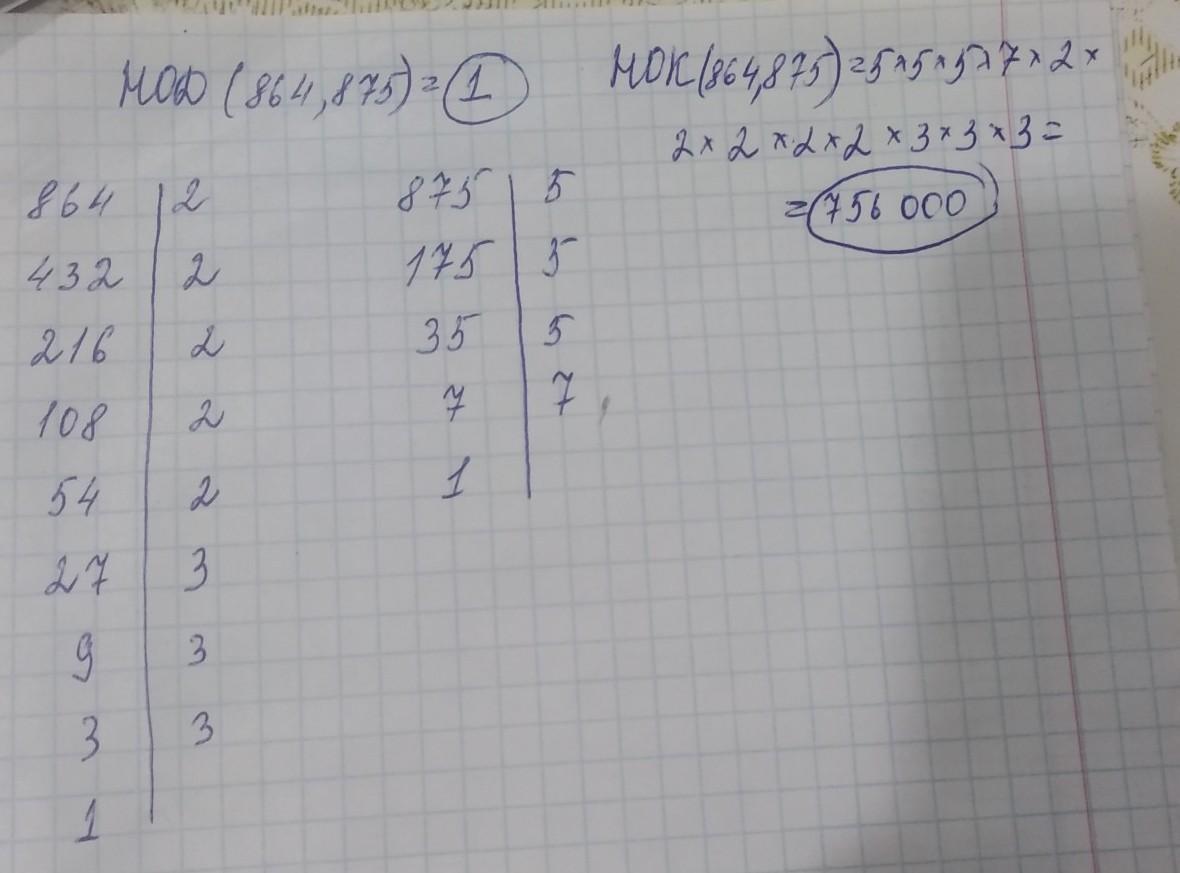 НОД (864,875)=1
НОК(864,875)=5×5×5×7×2×
2×2×2×2×3×3×3=
=756 000
864 | 2
432 | 2
216 | 2
108 | 2
54 | 2
27 | 3
9 | 3
3 | 3
1
875 | 5
175 | 5
35 | 5
7 | 7
1